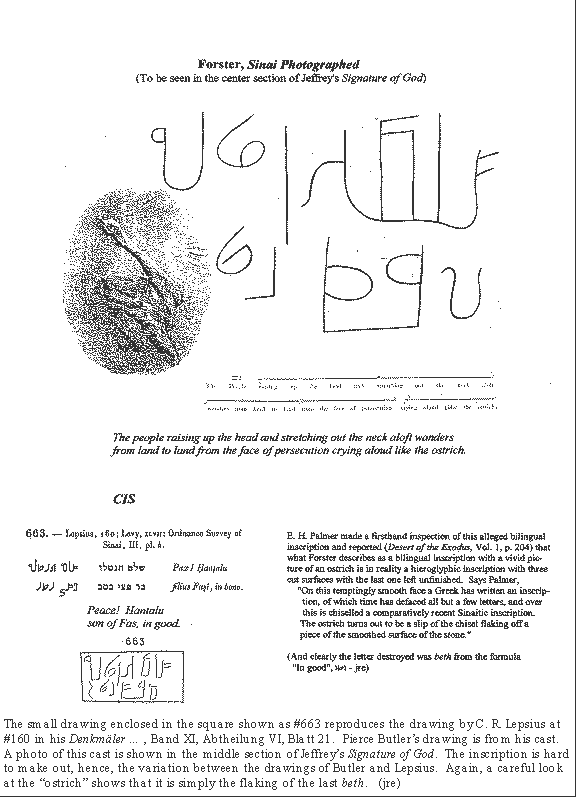 Forster, Sinai Photographed
(To be seen in the center section of Jeffrey's Signature of God)
The people raising up the head and stretching out the neck aloft wonders
from land to land from the face of persecution crying aloud like the ostrich.
CIS
663. — Lepsius, 160; Levy, XLVII; Ordnance Survey of
Sinai, III, pl. 8.
שלם חנטלו Pax! Hantalu
בר פצי בטב filius Fași, in bono.
Peace! Hantalu
son of Fas, in good.
663
E. H. Palmer made a firsthand inspection of this alleged bilingual
inscription and reported (Desert of the Exodus, Vol. 1, p. 204) that
what Forster describes as a bilingual inscription with a vivid pic-
ture of an ostrich is in reality a hieroglyphic inscription with three
cut surfaces with the last one left unfinished. Says Palmer,
"On this temptingly smooth face a Greek has written an inscrip-
tion, of which time has defaced all but a few letters, and over
this is chiselled a comparatively recent Sinaitic inscription.
The ostrich turns out to be a slip of the chisel flaking off a
piece of the smoothed surface of the stone."
(And clearly the letter destroyed was beth from the formula
"In good", - jre)
The small drawing enclosed in the square shown as #663 reproduces the drawing by C. R. Lepsius at
#160 in his Denkmäler ... , Band XI, Abtheilung VI, Blatt 21. Pierce Butler's drawing is from his cast.
A photo of this cast is shown in the middle section of Jeffrey's Signature of God. The inscription is hard
to make out, hence, the variation between the drawings of Butler and Lepsius. Again, a careful look
at the "ostrich" shows that it is simply the flaking of the last beth. (jre)